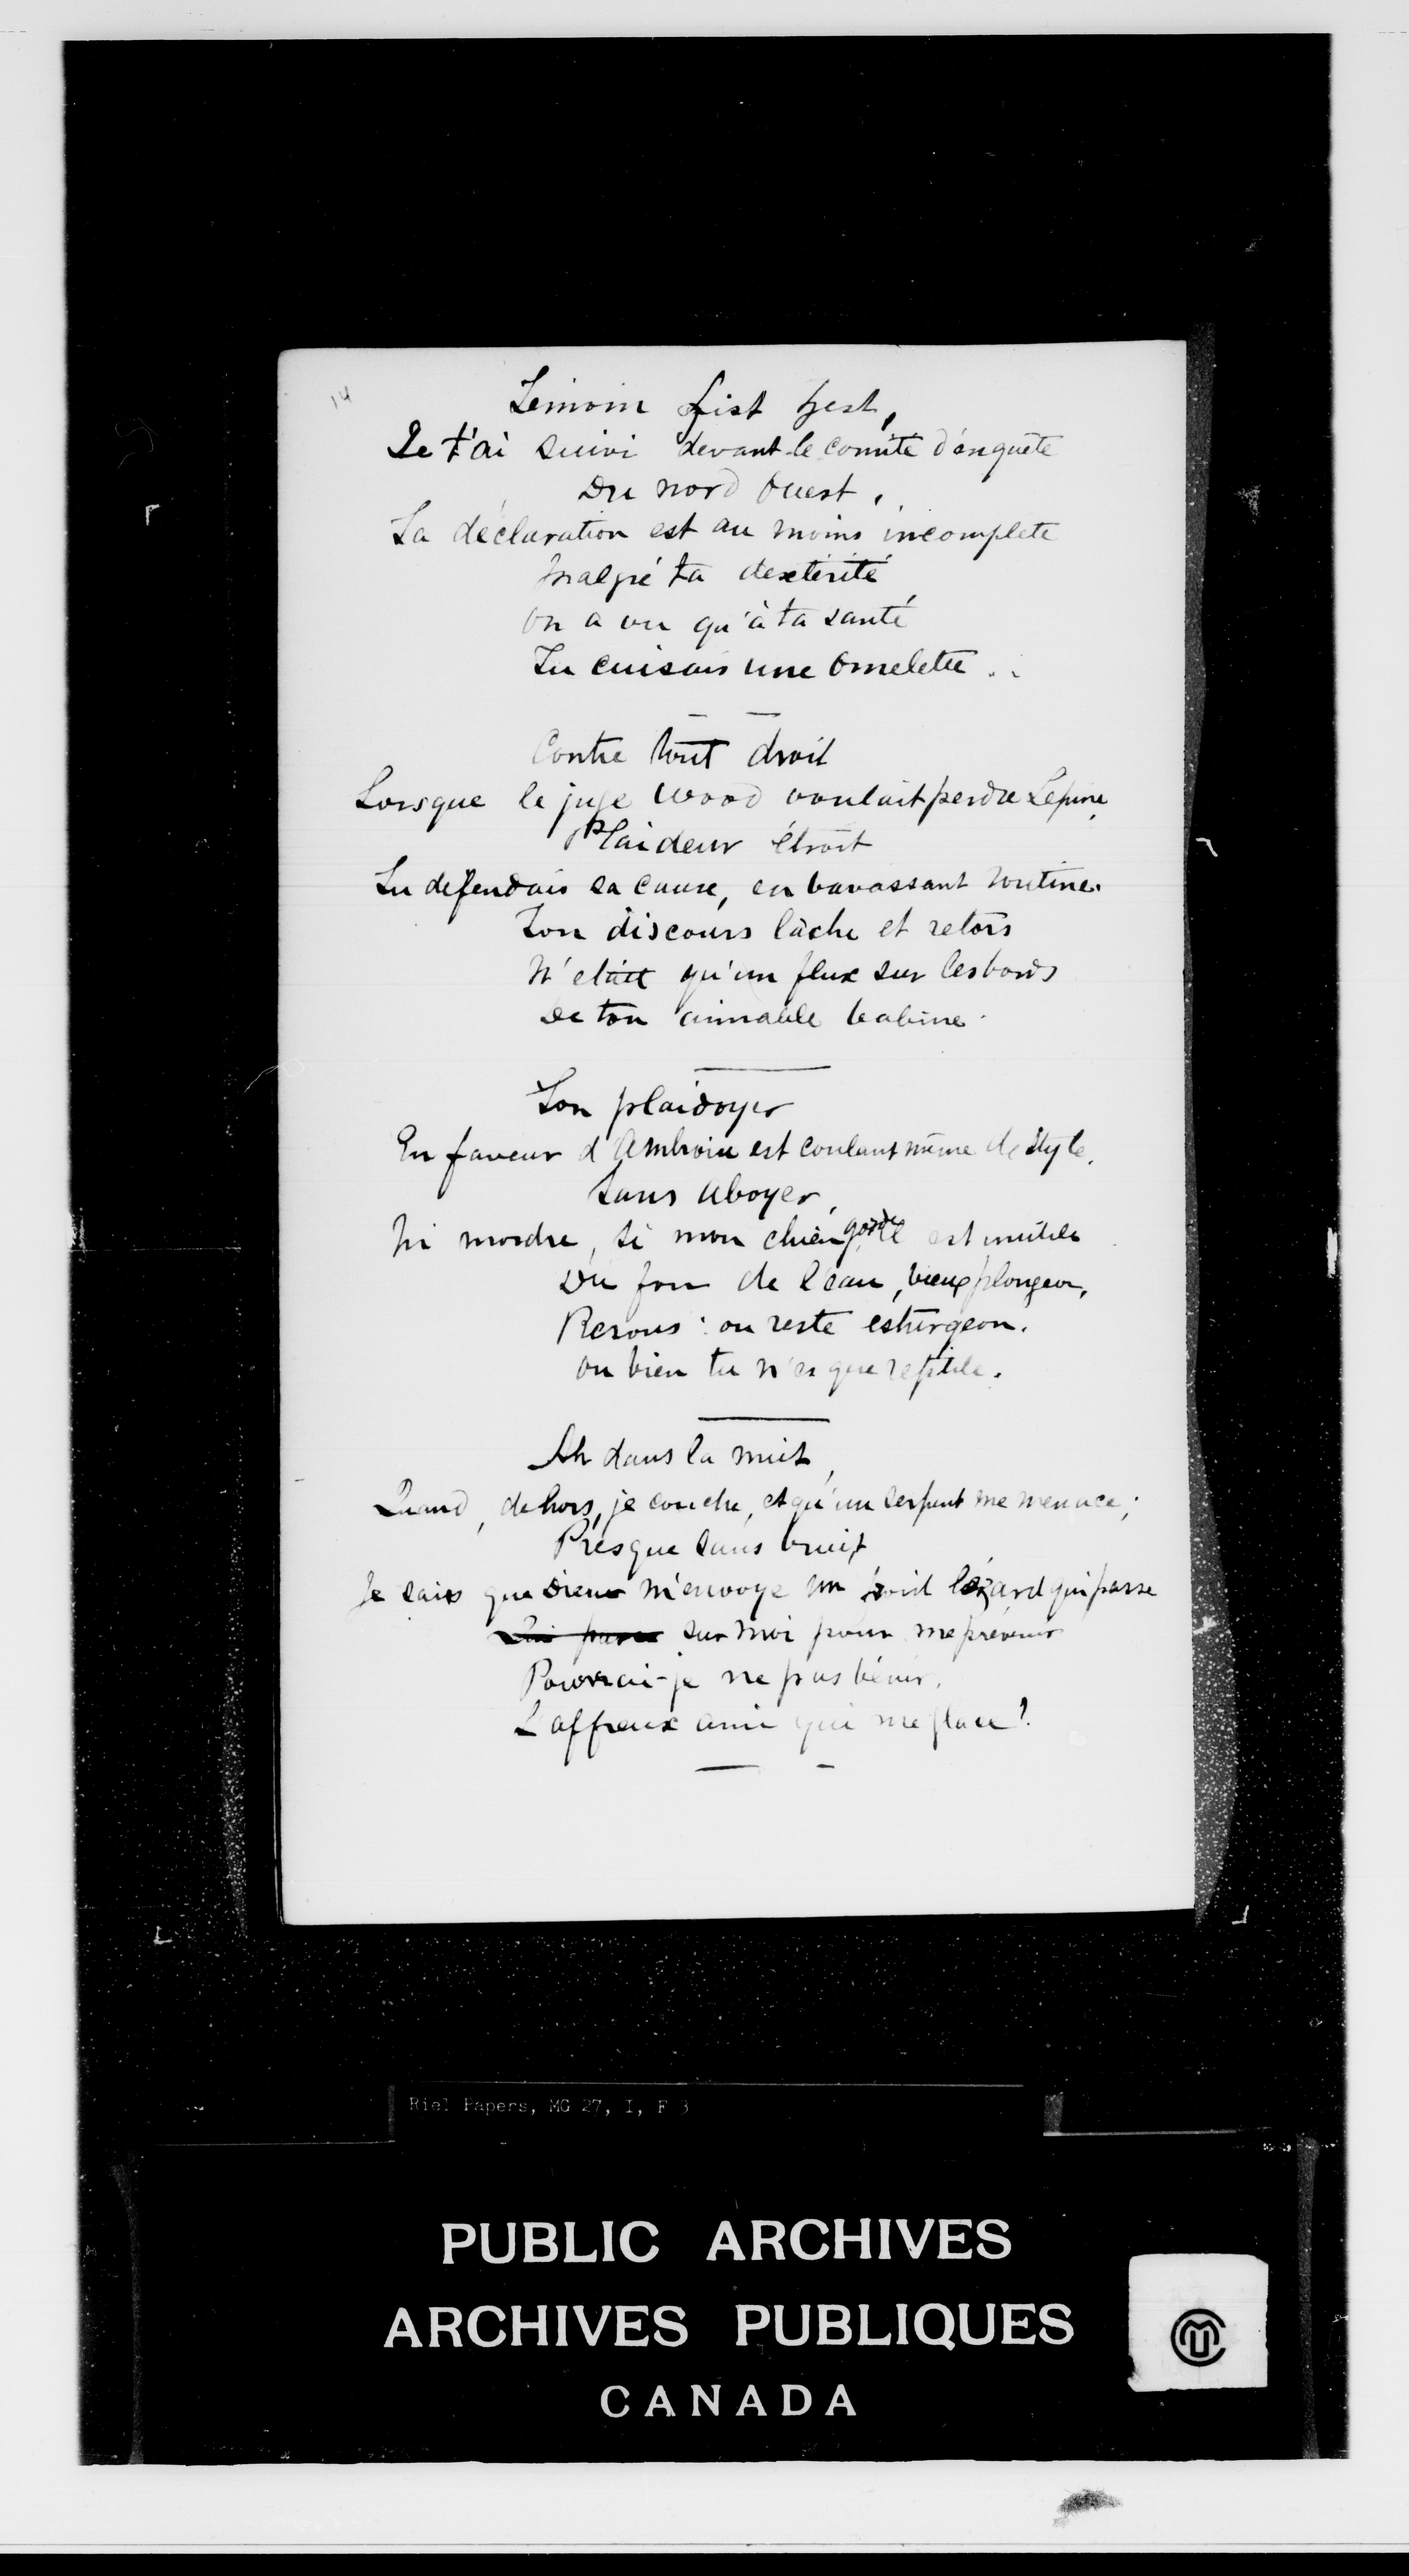 14
Témoin fist hest,
Je t'ai suivi devant le comité d'enquête
Du nord Ouest,
Ta déclaration est au moins incomplète
Malgré ta dextérité
On a vu qu'à ta santé
Tu cuisais une Omelette ..
Contre tout droit
Lorsque le juge Wood voulait perdre Lepine,
Plaideur étroit
Tu defendais sa cause, en bavassant routine.
Ton discours lâche et retors
N'était qu'un flux sur les bords
De ton aimable babine.
Ton plaidoyer
En faveur d'Ambroise est coulant même de Style.
Sans aboyer,
Ni mordre, si mon chien garde est inutile
Du fon de l'eau, vieux plongeon,
Resous: ou reste esturgeon.
Ou bien tu n'es que reptile.
Ah dans la nuit,
Quand, dehors, je couche, et qu'un serpent me menace;
Presque sans bruit
Je sais que Dieu m'envoye un froid lézard qui passe
Qui passe sur moi pour me prévenir
Pourrai-je ne pas bénir,
L'affreux ami qui me glace!
Riel Papers, MG 27, I, F 3
PUBLIC ARCHIVES
ARCHIVES PUBLIQUES
CANADA